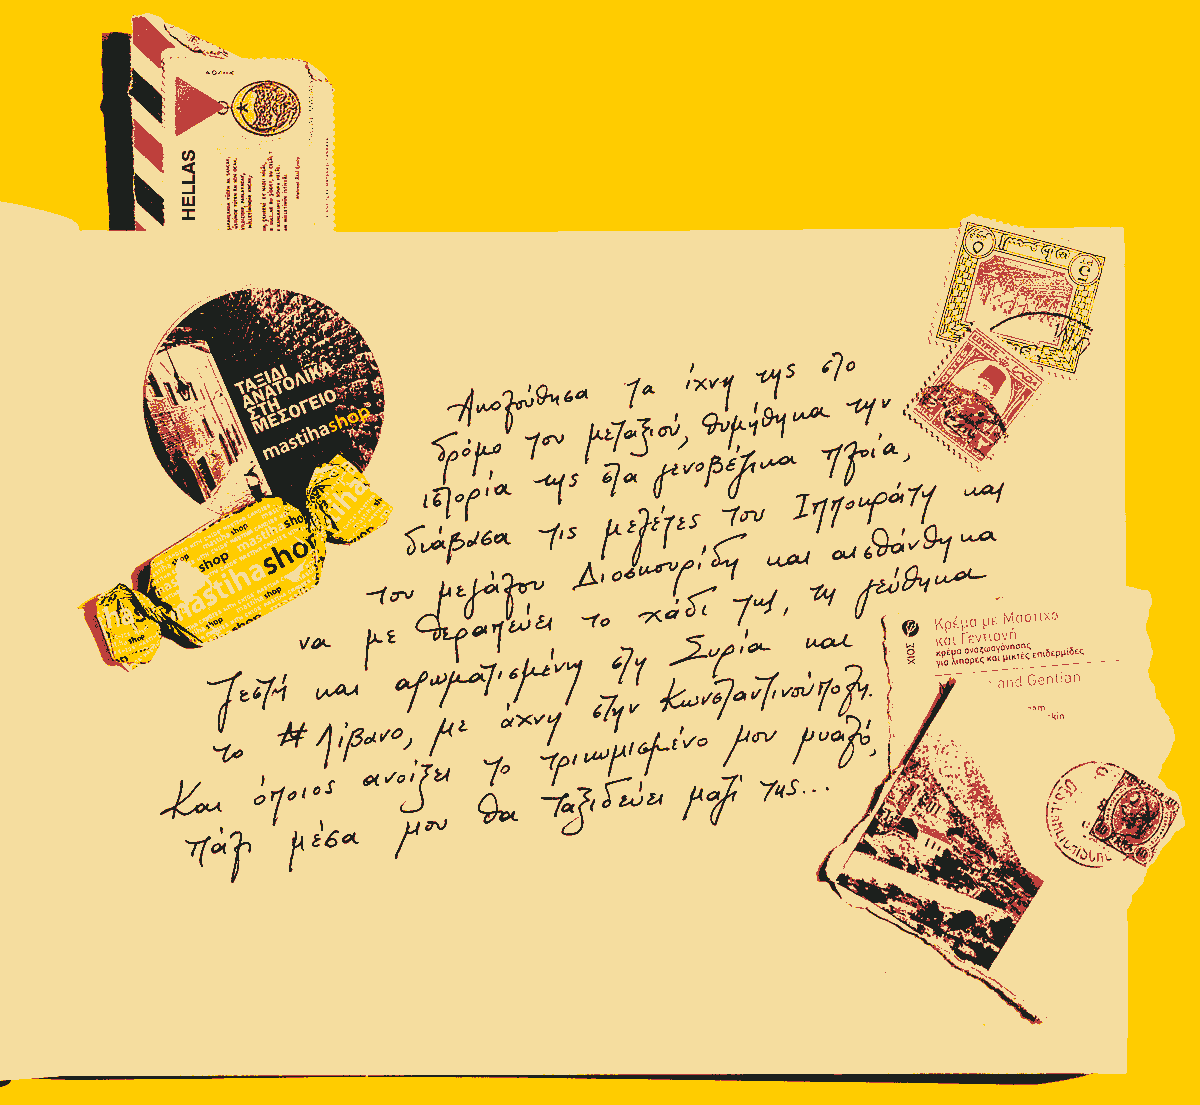 HELLAS
ΤΑΞΙΔΙ
ΑΝΑΤΟΛΙΚΑ
ΣΤΗ
ΜΕΣΟΓΕΙΟ
mastihashop
mastihashop
shop
shop
shop
shop
shop
Ακολούθησα τα ίχνη της στο
δρόμο του μεταξιού, θυμήθηκα την
ιστορία της στα γενοβέζικα πλοία,
διάβασα τις μελέτες του Ιπποκράτη και
του μεγάλου Διοσκουρίδη και αισθάνθηκα
να με θεραπεύει το χάδι της, τη γεύθηκα
ζεστή και αρωματισμένη στη Συρία και
το Λίβανο, με άχνη στην Κωνσταντινούπολη.
Και όποιος ανοίξει το τρικυμισμένο μου μυαλό,
πάλι μέσα μου θα ταξιδεύει μαζί της...
ΧΙΟΣ
Κρέμα με Μαστίχα
και Γεντιανή
κρέμα αναζωογόνησης
για λιπαρές και μικτές επιδερμίδες
and Gentian
skin